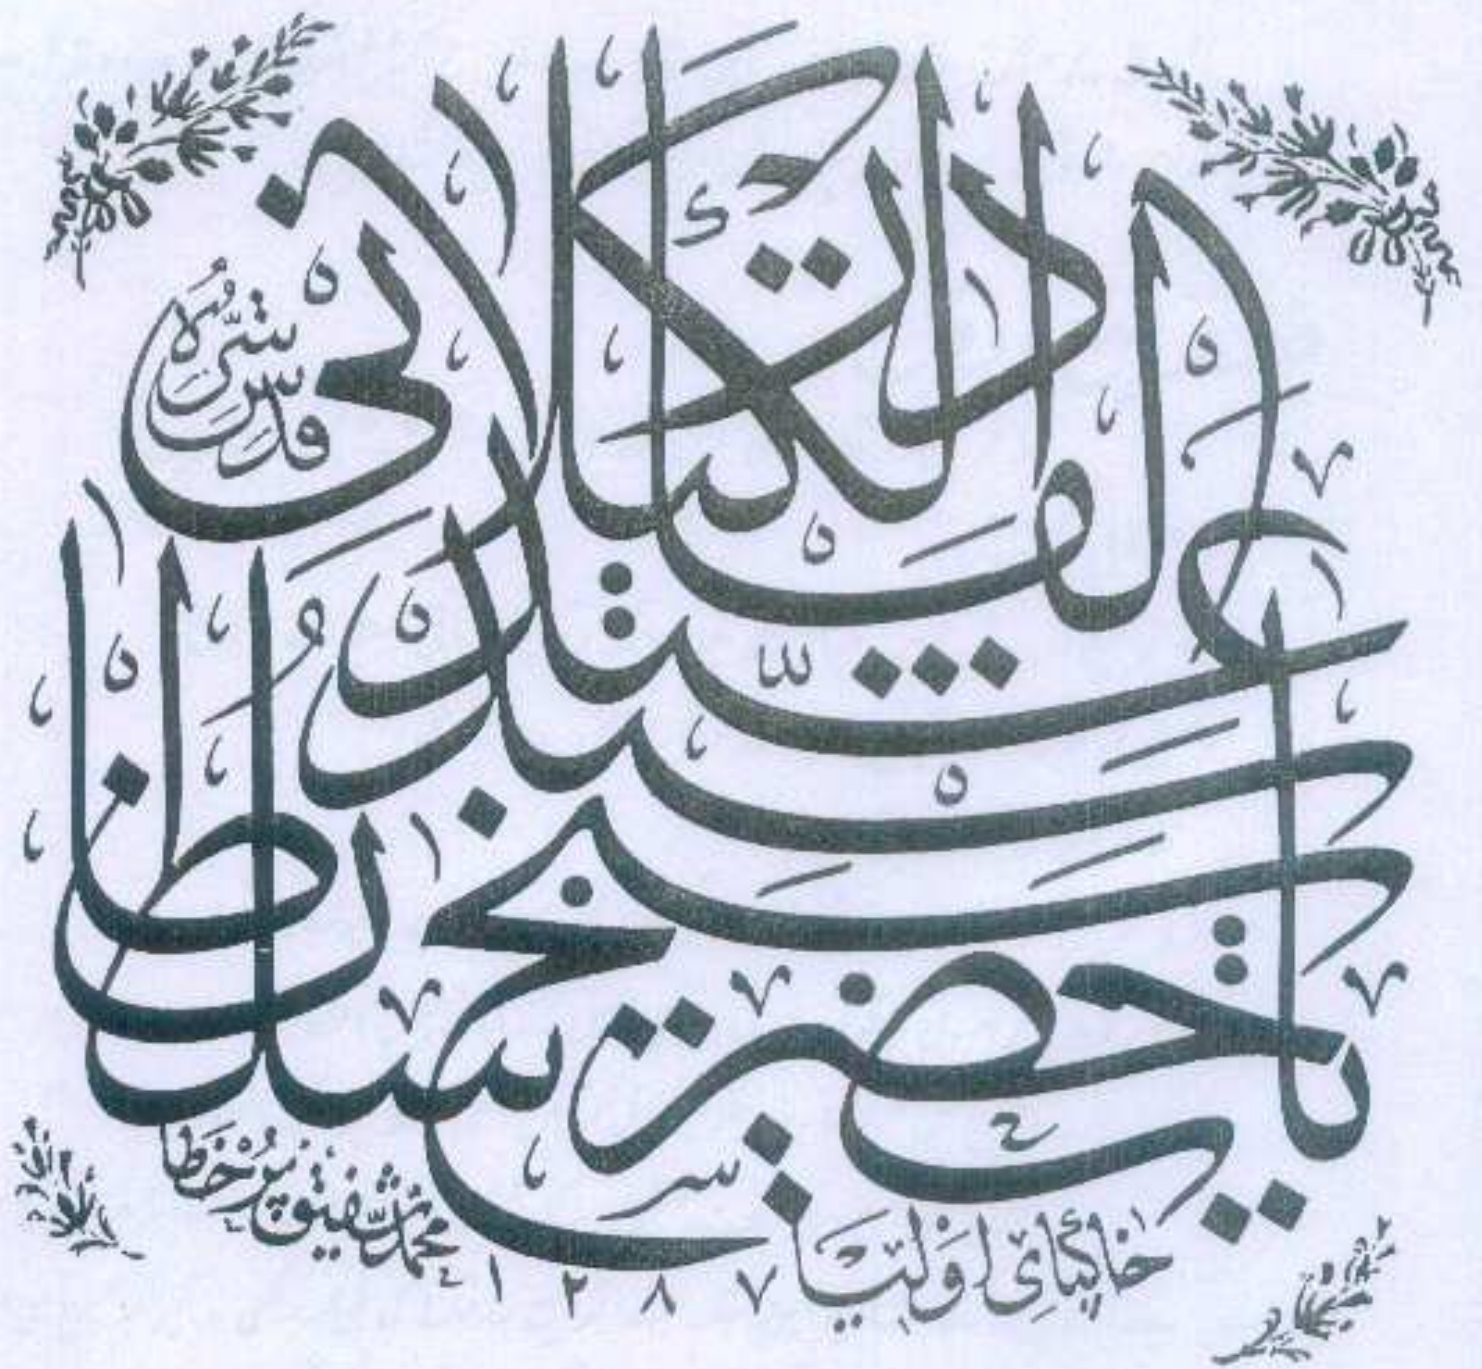 يا حضرت سلطان
شيخ سيد
عبد القادر
الكيلانى
قدس سره
خاكپاى اوليا
محمد شفيق پر خطا
١٢٨٧